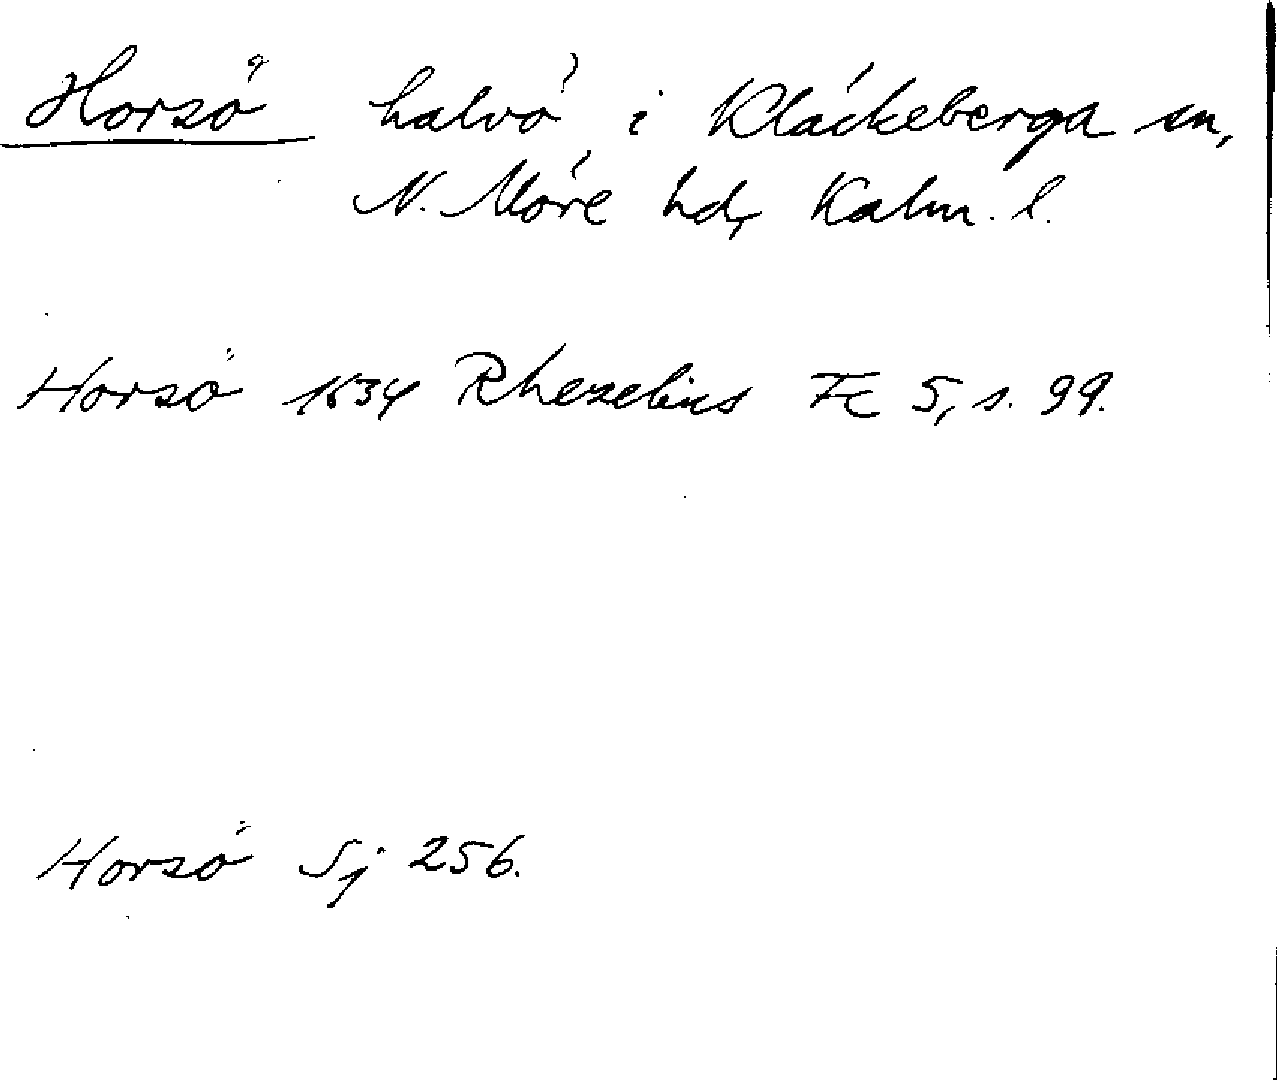 Horsö halvö i Kläckeberga sn,
N. Möre hd, Kalm. l.
Horsö 1634 Rhezelius Fc 5, s. 99.
Horsö Sj 256.